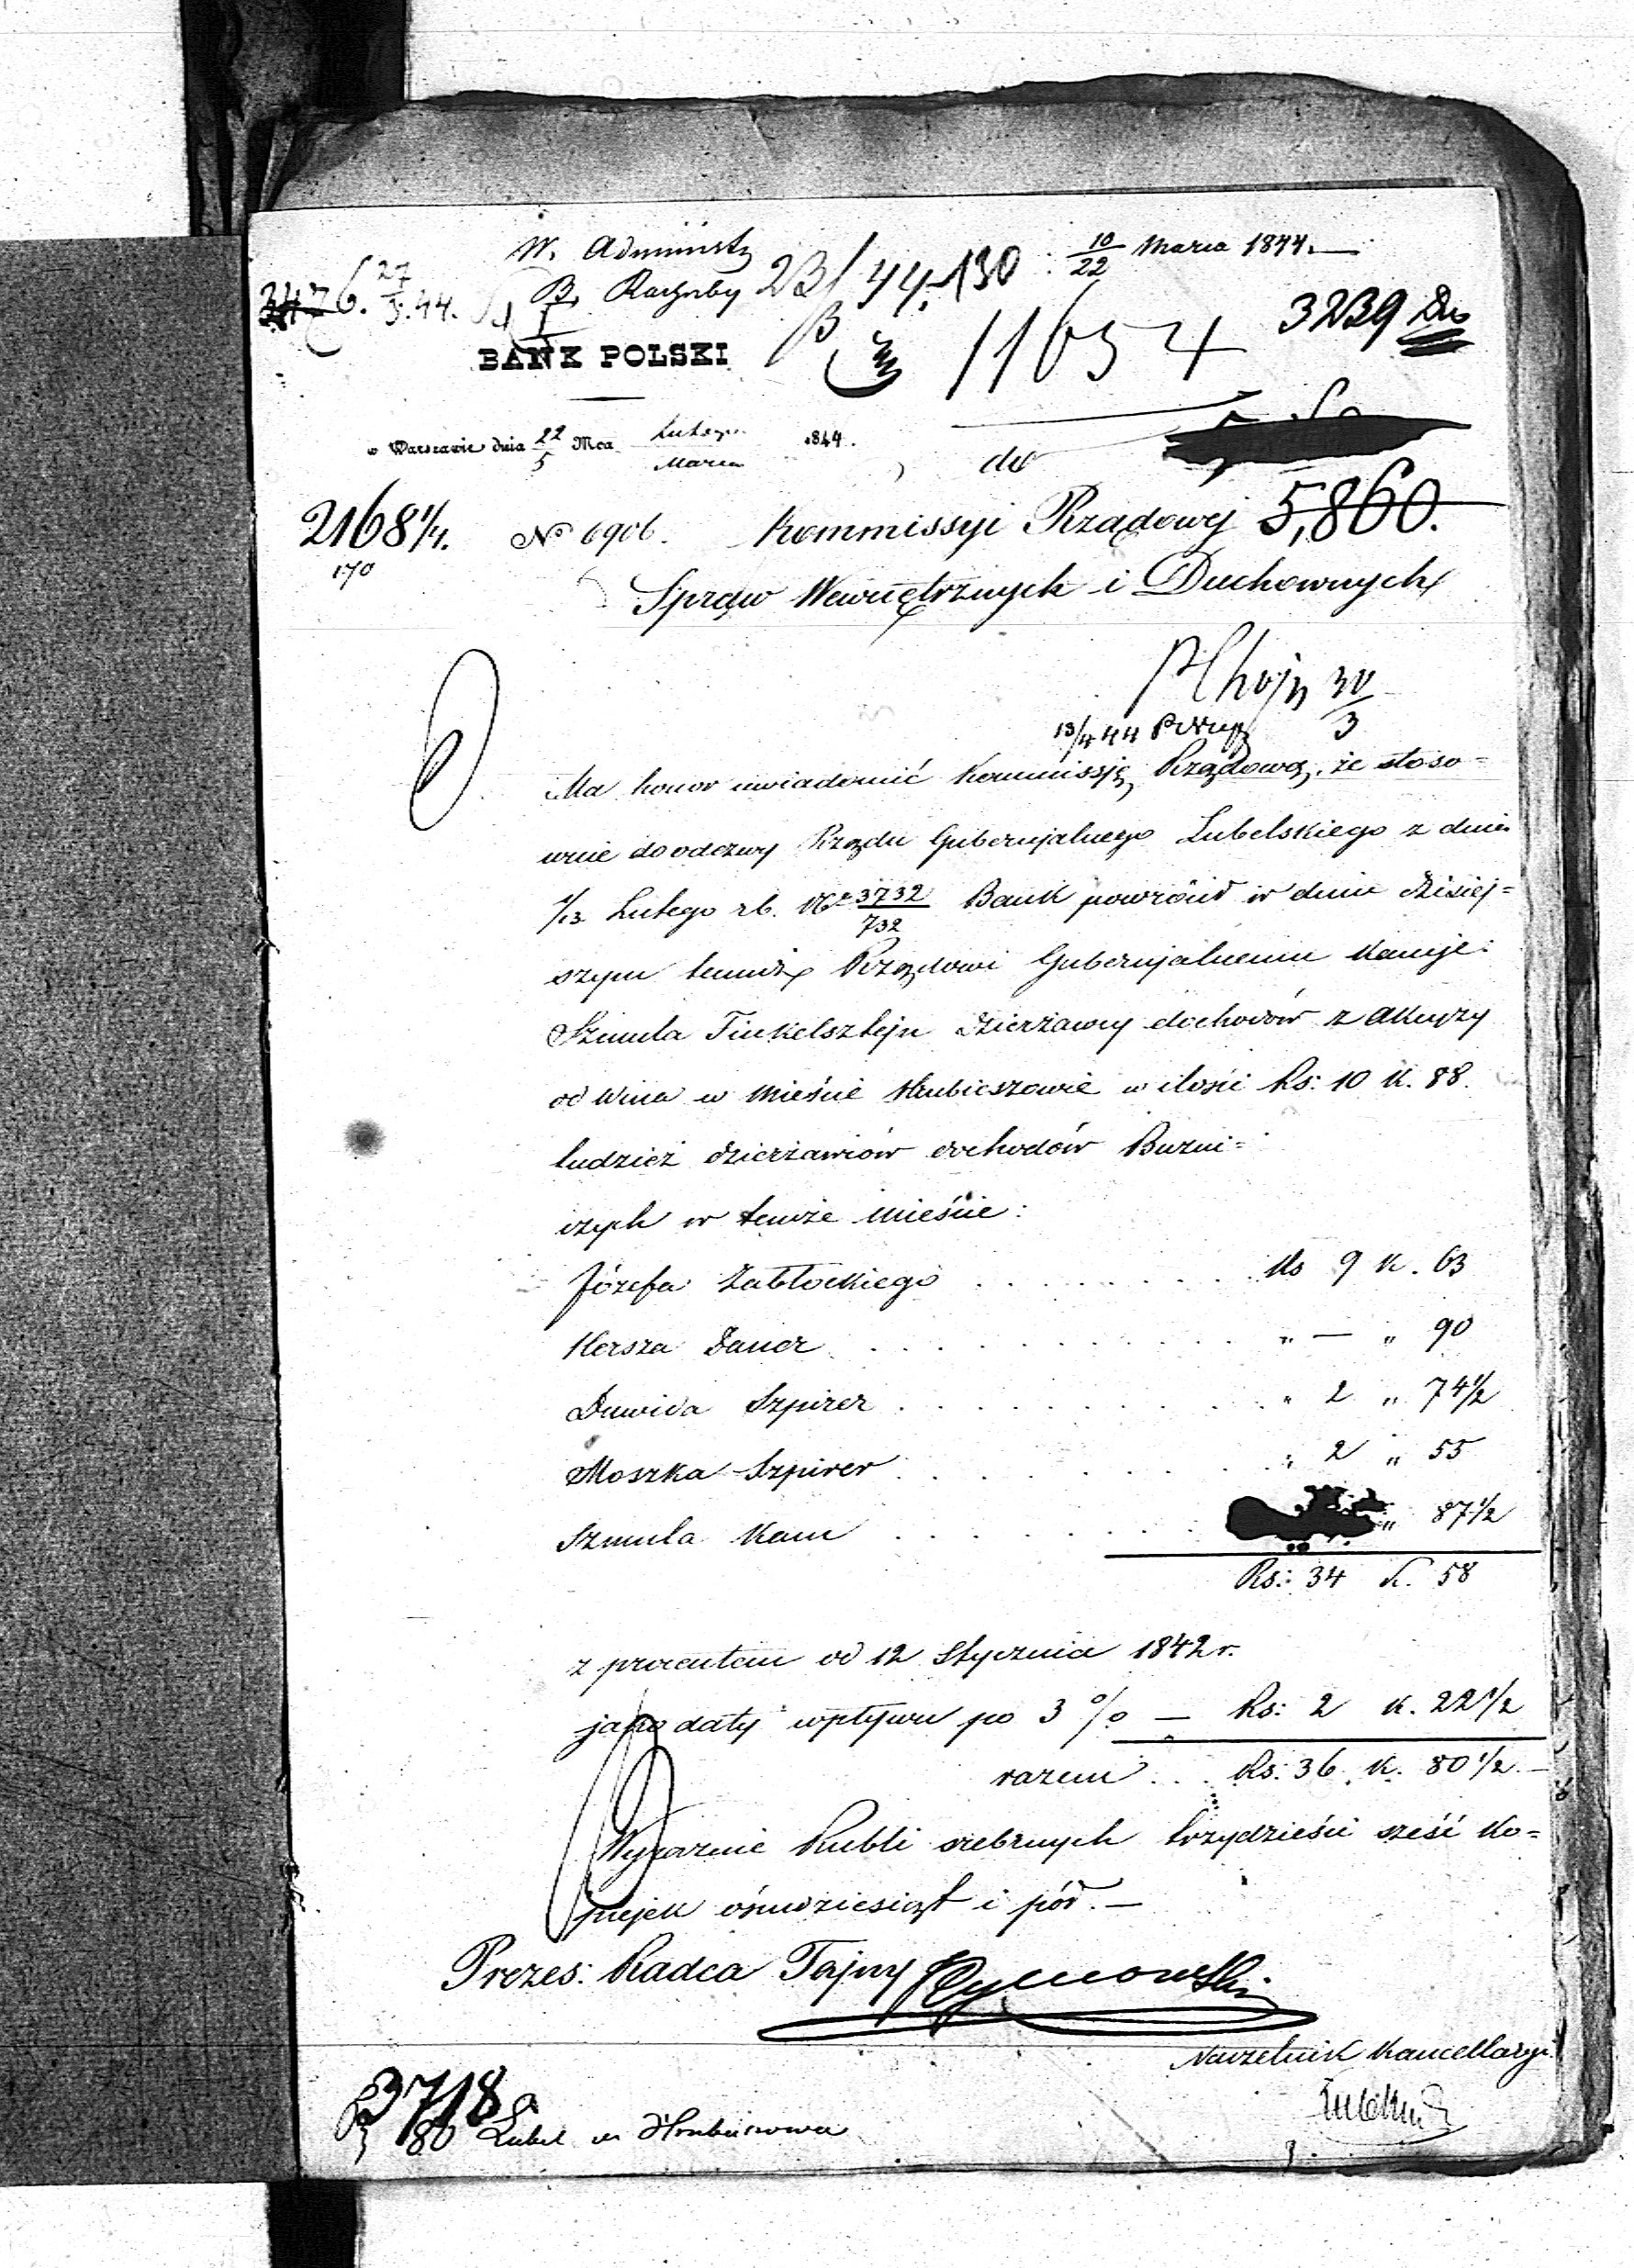 W. Administr
10/22 Marca 1844.
B. Rachuby 23/44. 130
3476. 27/3.44.
3239
11654
BANK POLSKI
w Warszawie dnia 22/5 Mca Lutego/Marca 1844.
do
2168 1/4. No 6906. Kommissyi Rządowej 5,860.
170
Spraw Wewnętrznych i Duchownych
30/3
13/4 44
Ma honor uwiadomić Kommissję Rządową, że stoso=
wnie do odezwy Rządu Gubernjalnego Lubelskiego z dnia
1/13 Lutego rb. No 3732/732 Bank powrócił w dniu dzisiej=
szym temuż Rządowi Gubernjalnemu Kaucje:
Szmula Finkelsztejn dzierżawcy dochodów z akcyzy
od Wina w Mieście Hrubieszowie w ilości Rs: 10 k. 88.
tudzież dzierżawców dochodów Bużni=
czych w temże mieście:
Józefa Zabłockiego . . . . . . . . . Rs 9 k. 63
Hersza Daner . . . . . . . . . . . " — " 90
Dawida Szpirer . . . . . . . . . . . " 2 " 74 1/2
Moszka Szpirer . . . . . . . . . . " 2 " 55
Szmula Kam . . . . . . . . " 87 1/2
Rs: 34 k. 58
z procentem od 12 Stycznia 1842 r.
jako daty wpływu po 3 % — Rs: 2 k. 22 1/2
razem . . . Rs: 36. k. 80 1/2.—
Wyraźnie Rubli srebrnych trzydzieści sześć ko=
piejek ośmdziesiąt i pół.—
Prezes: Radca Tajny Tymowski
Naczelnik Kancellaryi
3718
80 Lubel m Hrubieszowa